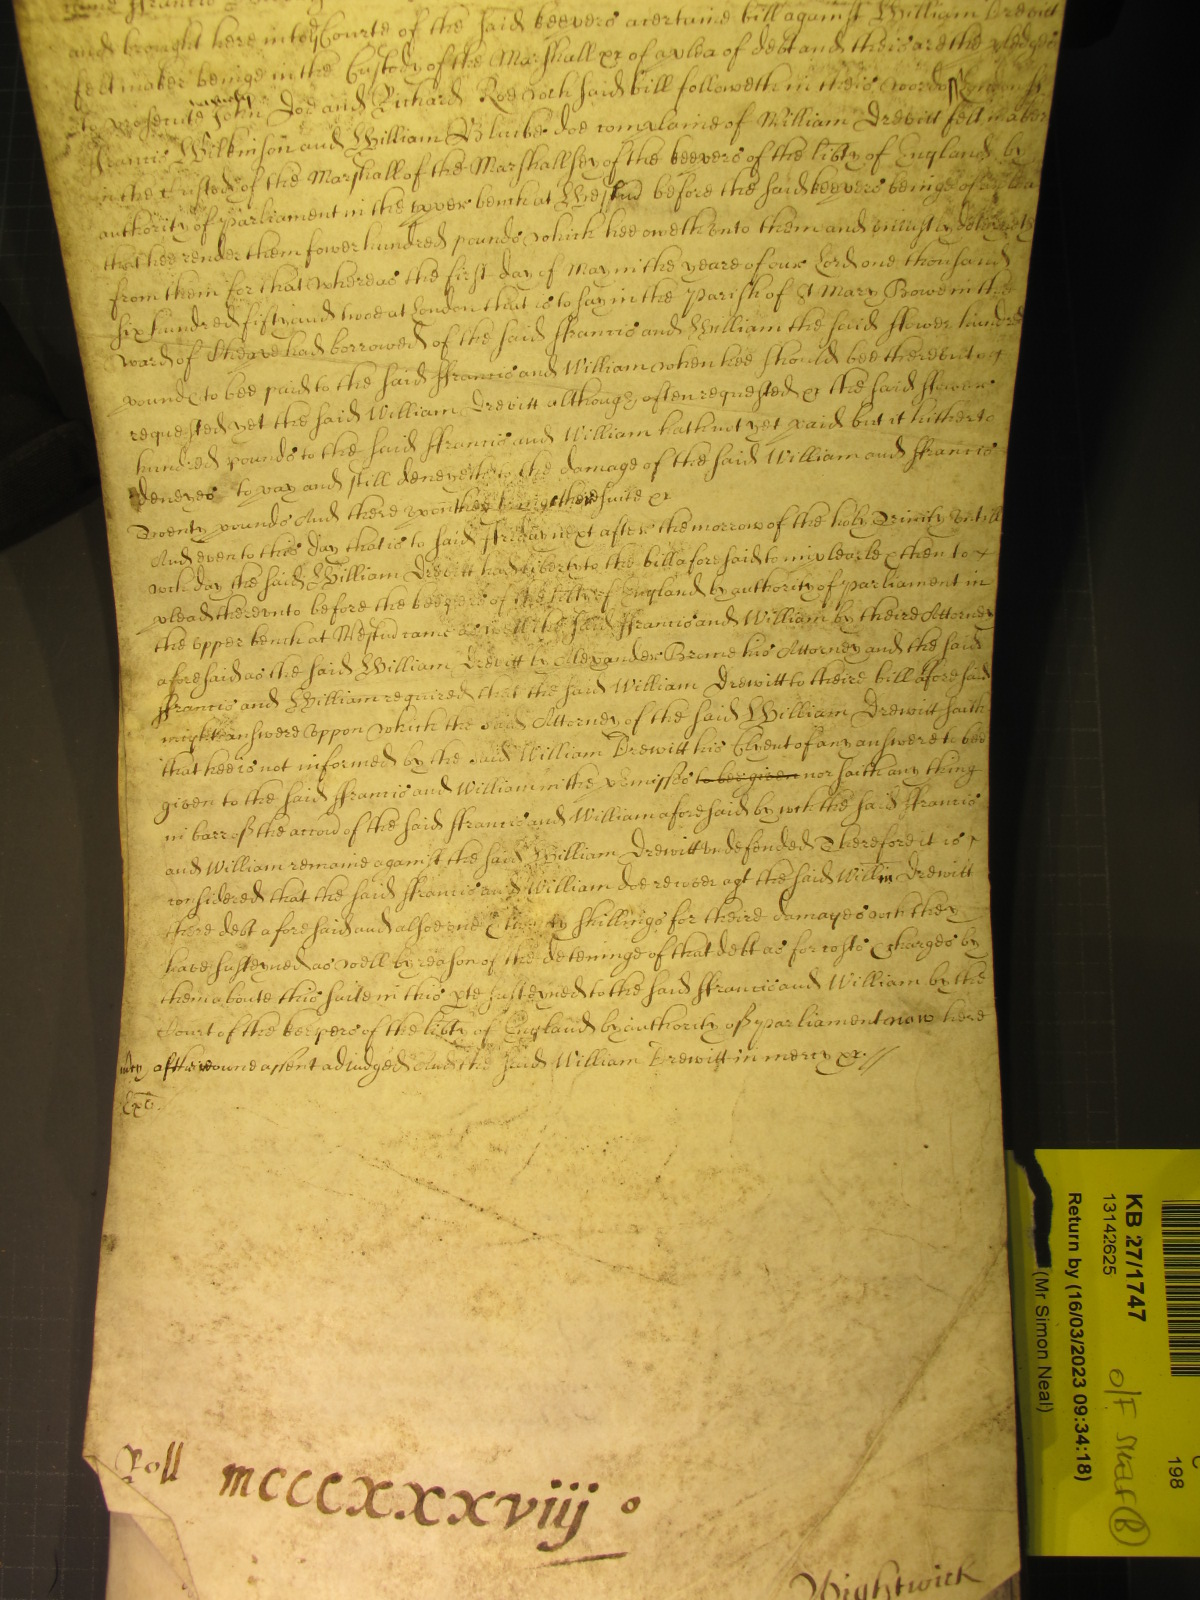 and brought here into ye Courte of the said keepers acertaine bill against William Drewitt
feltmaker beinge in the Custody of the Marshall xr of a plea of debt and theis are the pledges
to prosecute namely John Doe and Richard Roe wch said bill followeth in theis words
ffrancis Wilkinson and William doe complaine of William Drewitt felt maker
in the Custody of the Marshall of the Marshallsey of the keepers of the libty of England by
authority of parliament in the upper bench at Westm before the said keepers beinge of a plea
that hee render them fower hundred pounds which hee oweth unto them and uniustly deteyneth
from them for that whereas the first day of May in the yeare of our Lord one thousand
six hundred fifty and twoe at London that is to say in the parish of St Mary Bowe in the
ward of Cheape had borrowed of the said ffrancis and William the said ffower hundred
pounds to bee paid to the said ffrancis and William when hee should bee thereunto
requested yet the said William Drewitt although often requested xr the said ffower
hundred pounds to the said ffrancis and William hath not yet paid but it hitherto
denyes to pay and still denyeth to the damage of the said William and ffrancis
Twenty pounds And there upon they bringe there suite xr
And even to this day that is to said ffriday next after the morrow of the holy Trinity untill
wch day the said William Drewitt had liberty to the bill aforesaid to imparle & then to
plead thereunto before the keepers of the libty of England by authority of parliament in
the upper bench at Westm came as well the said ffrancis and William by theire Attorney
aforesaid as the said William Drewitt by Alexander Brome his Attorney and the said
ffrancis and William required that the said William Drewitt to theire bill aforesaid
might answere uppon which the said Attorney of the said William Drewitt saith
that hee is not informed by the said William Drewitt his Clyent of any answere to bee
given to the said ffrancis and William in the premisses to bee given nor saith any thing
in barr of the accon of the said ffrancis and William aforesaid by wch the said ffrancis
and William remaine against the said William Drewitt undefended Therefore it is
considered that the said ffrancis and William doe recover agt the said Willm Drewitt
there debt aforesaid and alsoe shillings for theire damages wch they
have susteyned as well by reason of the deteninge of that debt as for costs & charges by
them aboute this suite in this pte susteyned to the said ffrancis and William by the
Court of the keepers of the libty of England by authority of parliament now here
mcy of theire owne assent adiudged And the said William Drewitt in mercy xr //
Roll MCCCXXXviij o
Wightwick
KB 27/1747
13142625
Return by (16/03/2023 09:34:18)
(Mr Simon Neal)
198